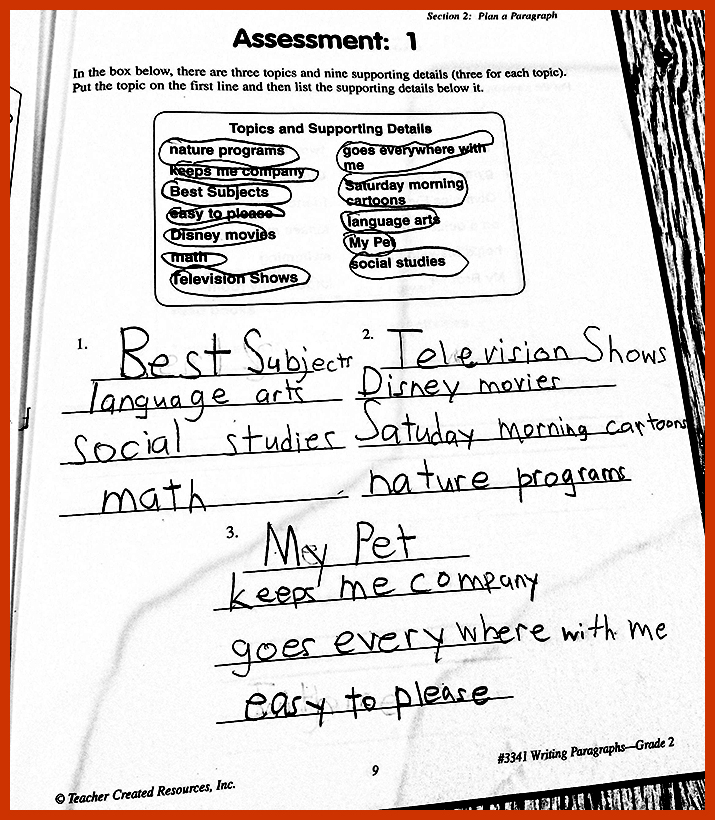 Section 2: Plan a Paragraph
Assessment: 1
In the box below, there are three topics and nine supporting details (three for each topic).
Put the topic on the first line and then list the supporting details below it.
Topics and Supporting Details
nature programs
keeps me company
Best Subjects
easy to please
Disney movies
math
Television Shows
goes everywhere with
me
Saturday morning
cartoons
language arts
My Pet
social studies
1.
Best Subjects
language arts
social studies
math
2.
Television Shows
Disney movies
Satuday morning cartoons
nature programs
3.
My Pet
keeps me company
goes everywhere with me
easy to please
#3341 Writing Paragraphs—Grade 2
9
© Teacher Created Resources, Inc.